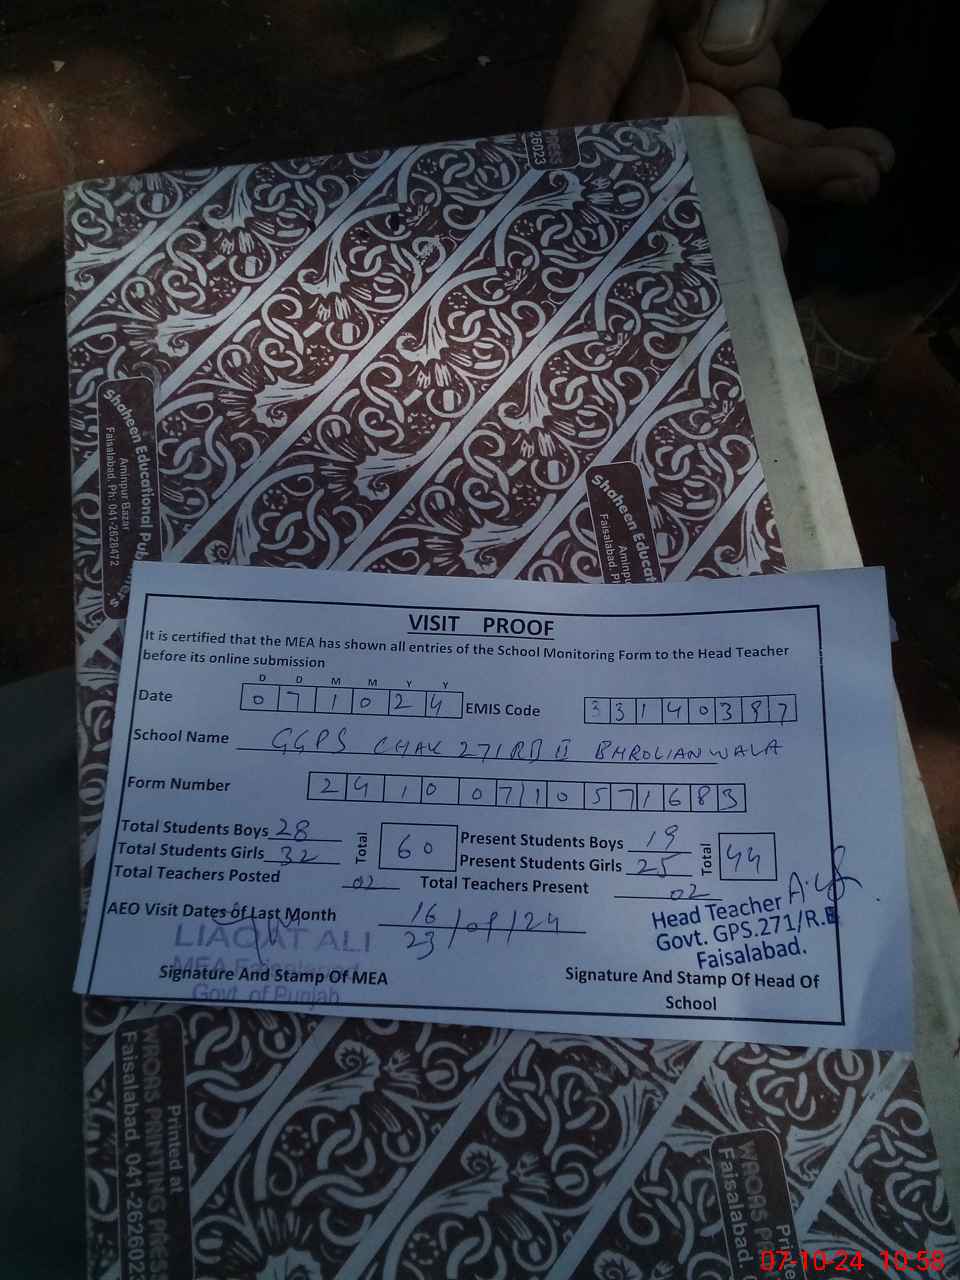 PRESS
26023
Shaheen Educational Pub
Aminpur Bazar
Faisalabad. Ph: 041-2628472
Shaheen Educat
Aminpu
Faisalabad. P
VISIT PROOF
It is certified that the MEA has shown all entries of the School Monitoring Form to the Head Teacher
before its online submission
D D M M Y Y
Date 0 7 1 0 2 4 EMIS Code 3 3 1 4 0 3 9 7
School Name GGPS CHAK 271 RB II BHROLIANWALA
Form Number 2 4 1 0 0 7 1 0 5 7 1 6 8 3
Total Students Boys 28 Total 60 Present Students Boys 19 Total 44
Total Students Girls 32 Present Students Girls 25
Total Teachers Posted 02 Total Teachers Present 02
AEO Visit Dates of Last Month 16
23 /09/24
Head Teacher
Govt. GPS.271/R.B
Faisalabad.
LIAQAT ALI
MEA Faisalabad
Govt. of Punjab
Signature And Stamp Of MEA
Signature And Stamp Of Head Of
School
Printed at
WAQAS PRINTING PRESS
Faisalabad. 041-262602
Prin
WAQAS PR
Faisalabad.
07-10-24 10:58